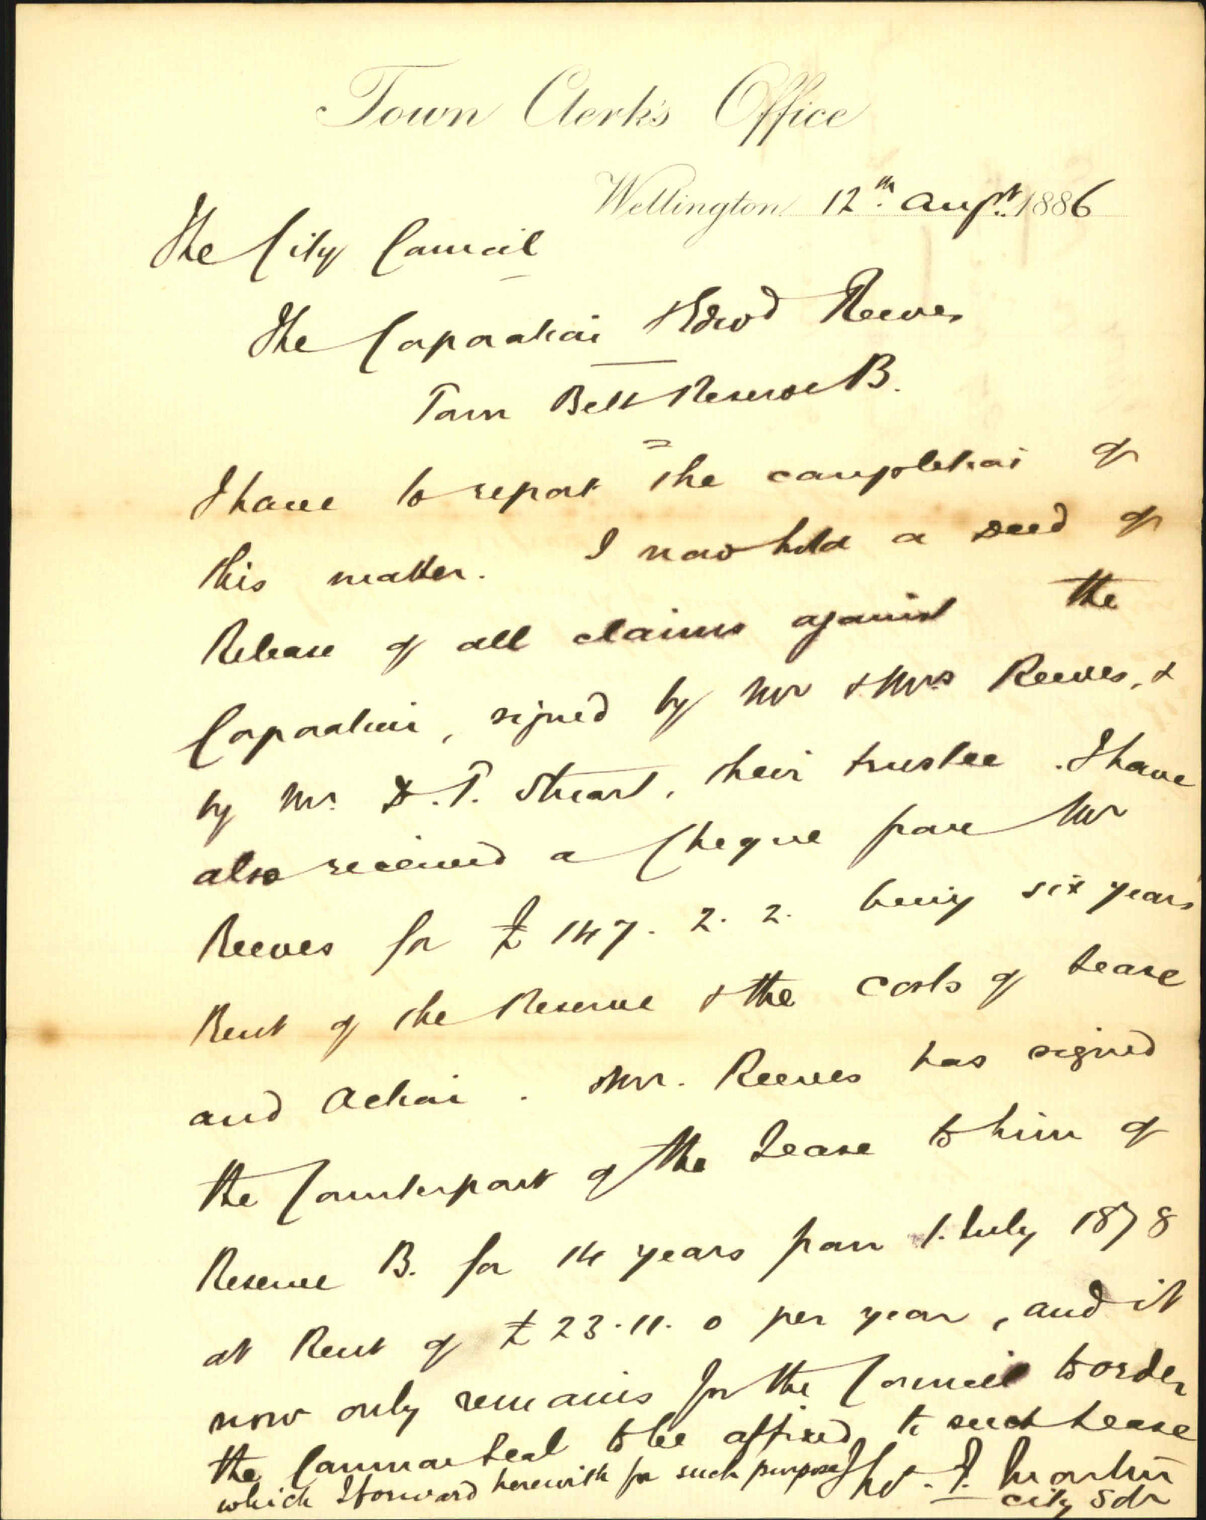 Town Clerk's Office
Wellington 12th Augst. 1886
The City Council
The Corporation & Edwd Reeves
Town Belt Reserve B.
I have to report the completion of
this matter. I now hold a deed of
Release of all claims against the
Corporation, signed by Mr & Mrs Reeves, &
by Mr. D. T. Stuart, their trustee. I have
also received a Cheque from Mr
Reeves for £147. 2. 2. being six years
Rent of the Reserve & the costs of Lease
and Action. Mr. Reeves has signed
the Counterpart of the Lease to him of
Reserve B. for 14 years from 1. July 1878
at Rent of £23.11.0 per year, and it
now only remains for the Council to order
the Common Seal to be affixed to such Lease
which I forward herewith for such purpose
Thos. F. Martin
City Solr